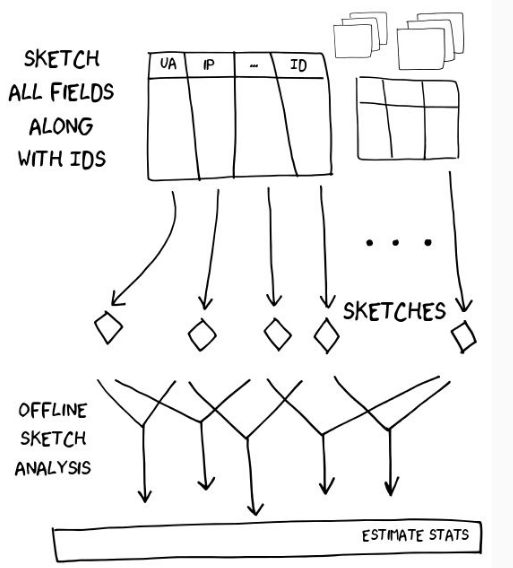 SKETCH
ALL FIELDS
ALONG
WITH IDS
UA IP ... ID
SKETCHES
OFFLINE
SKETCH
ANALYSIS
ESTIMATE STATS